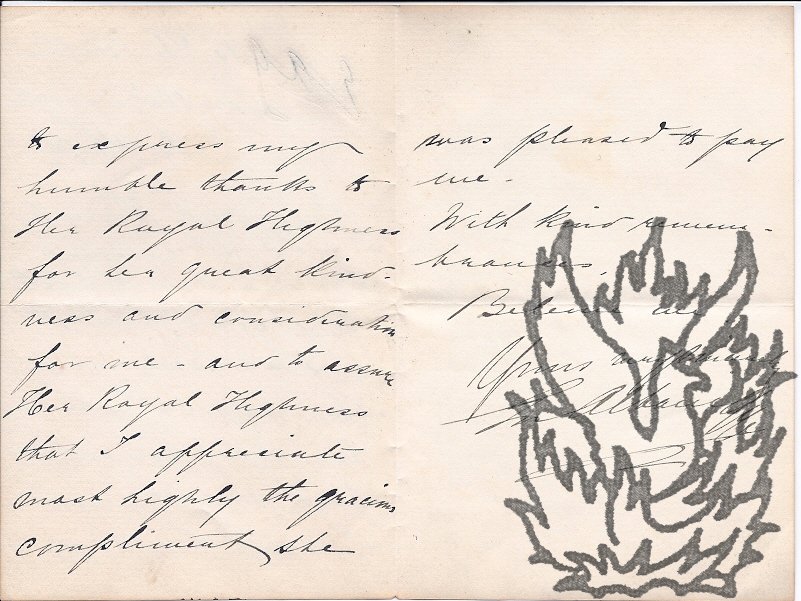 to express my
humble thanks to
Her Royal Highness
for her great kind-
ness and consideration
for me - and to assure
Her Royal Highness
that I appreciate
most highly the gracious
compliment she
was pleased to pay
me -
With kind remem-
brances,
Believe me
Yours